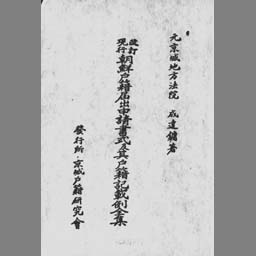 元京城地方法院 成達鏞著
改訂
現行 朝鮮戸籍届出申請書式及其戸籍記載例全集
發行所·京城戸籍研究會